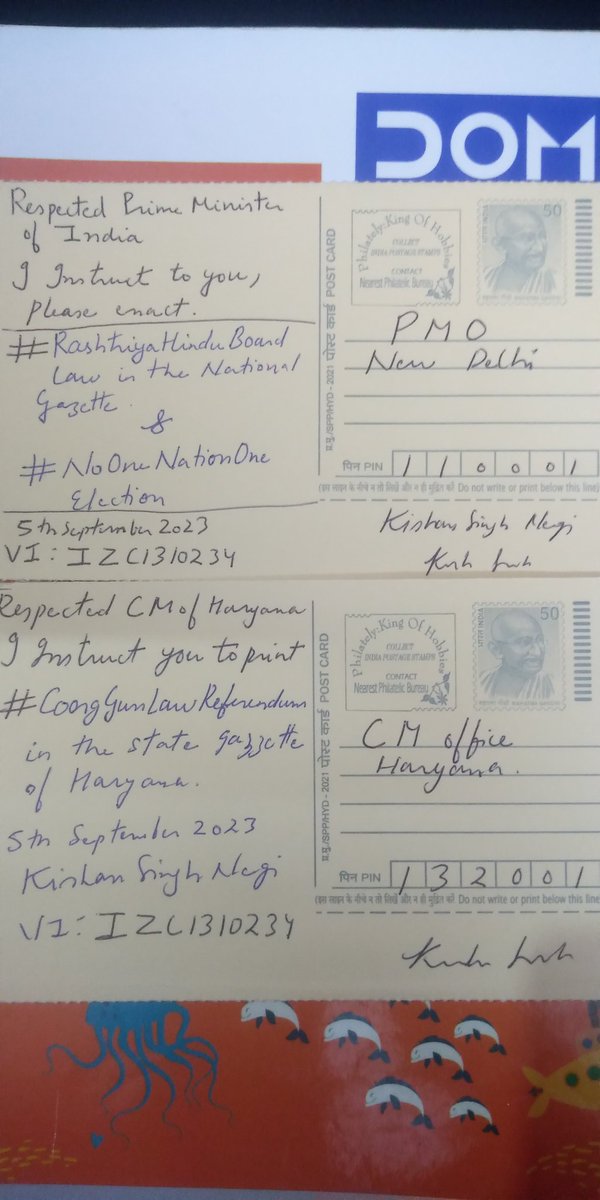 DOM
Respected Prime Minister
of India
I Instruct to you,
please enact.
#RashtriyaHinduBoard
Law in the National
Gazette.
&
#NoOneNationOne
Election
5th September 2023
VI: IZC1310234
प्र.मु./SPP/HYD - 2021 पोस्ट कार्ड POST CARD
Philately: King Of Hobbies
COLLECT
INDIA POSTAGE STAMPS
CONTACT
Nearest Philatelic Bureau
भारत INDIA
50
PMO
New Delhi
पिन PIN 110001
(इस लाइन के नीचे न तो लिखें और न ही मुद्रित करें Do not write or print below this line)
Kishan Singh Negi
Respected CM of Haryana
I Instruct you to print
#CoorgGunLawReferendum
in the state gazzette
of Haryana.
5th September 2023
Kishan Singh Negi
VI: IZC1310234
प्र.मु./SPP/HYD - 2021 पोस्ट कार्ड POST CARD
Philately: King Of Hobbies
COLLECT
INDIA POSTAGE STAMPS
CONTACT
Nearest Philatelic Bureau
भारत INDIA
50
CM office
Haryana.
पिन PIN 132001
(इस लाइन के नीचे न तो लिखें और न ही मुद्रित करें Do not write or print below this line)